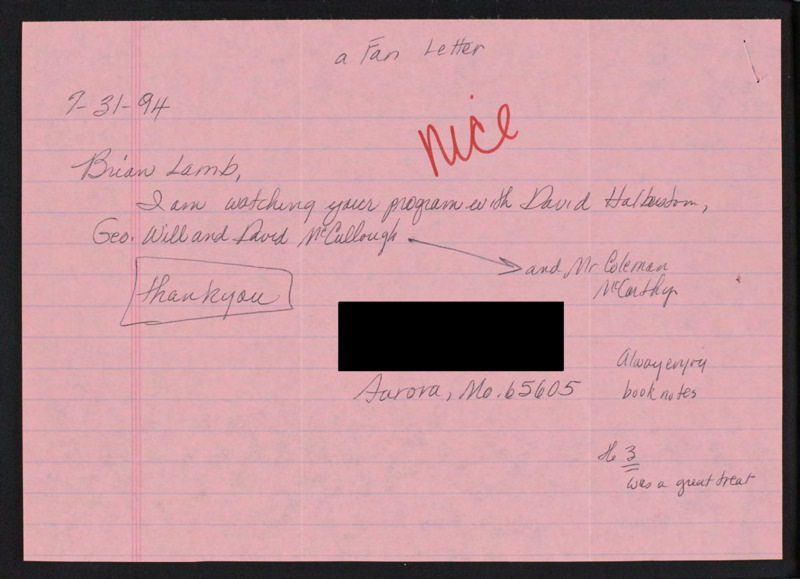 a Fan Letter
7-31-94
nice
Brian Lamb,
I am watching your program with David Halbustom,
Geo. Will and David McCullough
and Mr Coleman
McCarthy
thankyou
Aurora, Mo. 65605
Alway enjoy
book notes
The 3
was a great treat